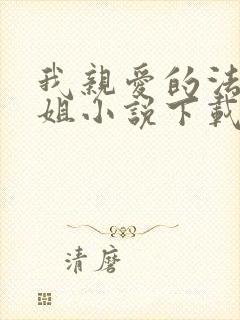 我親愛的法
姐小說下載
清磨